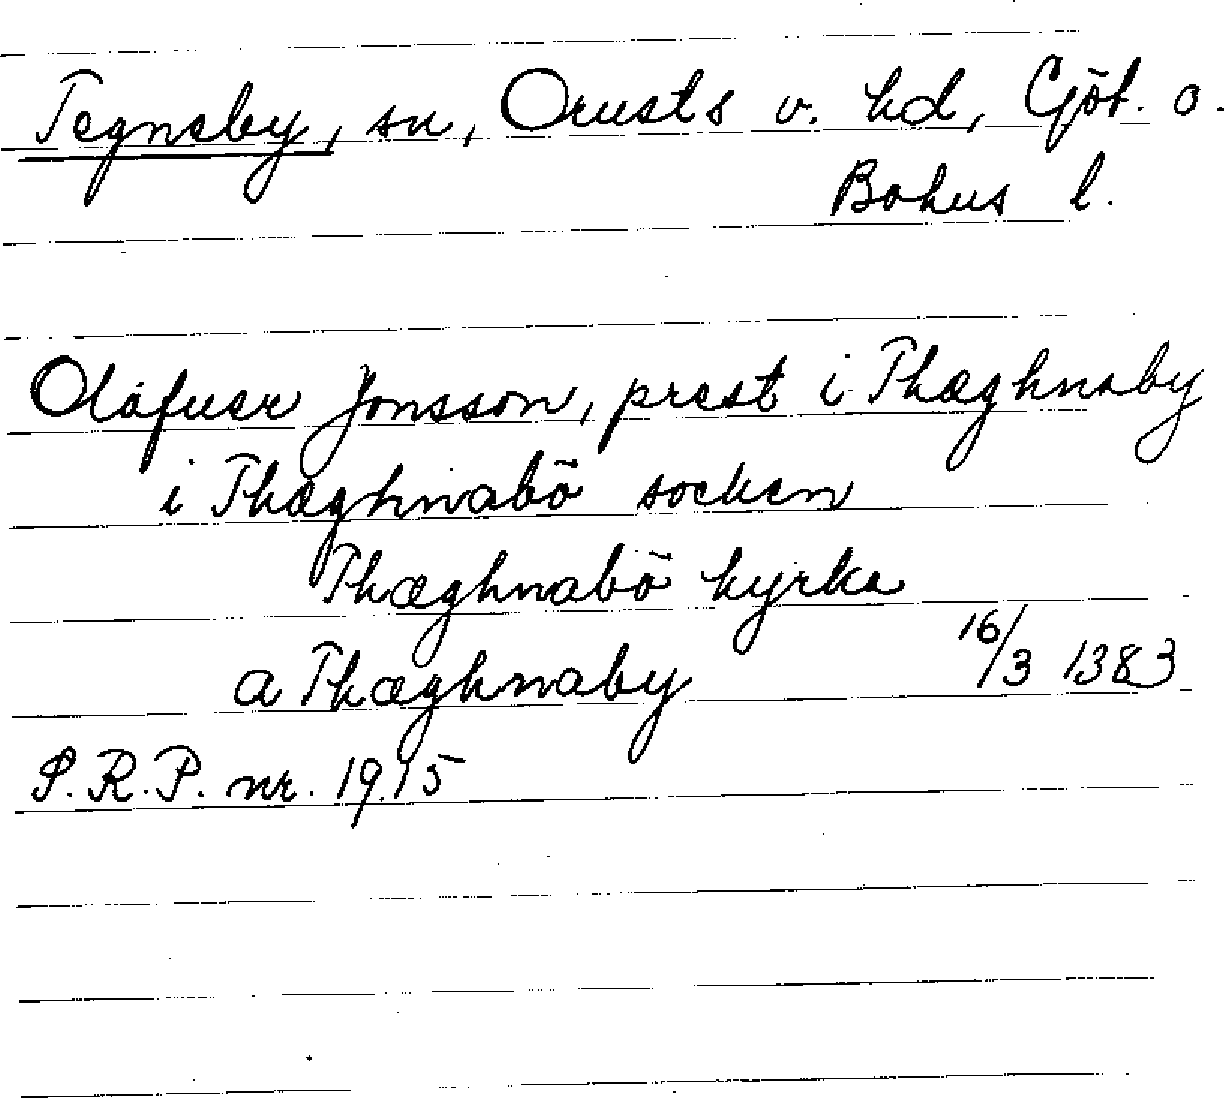 Tegneby, sn, Orusts v. hd, Göt. o.
Bohus l.
Olafuer Jonsson, prest i Thæghnaby
i Thæghnabö socken
Thæghnabö kyrka
a Thæghnaby 16/3 1383
S.R.P. nr. 1915